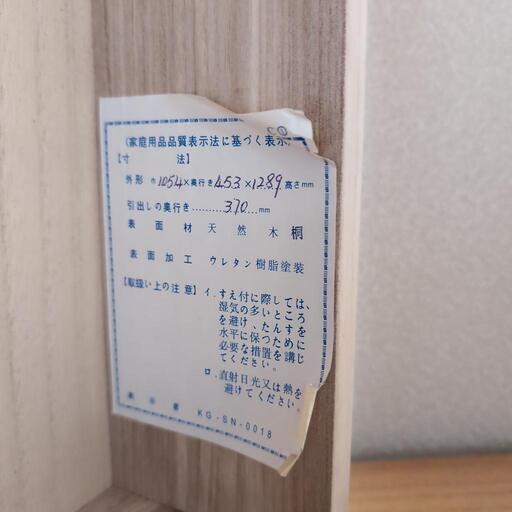 (家庭用品品質表示法に基づく表示)
【寸 法】
外形 巾1054×奥行き453×1289高さmm
引出しの奥行き.........370...mm
表面材 天然木 桐
表面加工 ウレタン樹脂塗装
【取扱い上の注意】イ.すえ付に際しては、
湿気の多いところ
を避け、たんすを
水平に保つために
必要な措置を講じ
てください。
ロ.直射日光又は熱を
避けてください。
表示者 KG-SN-0018